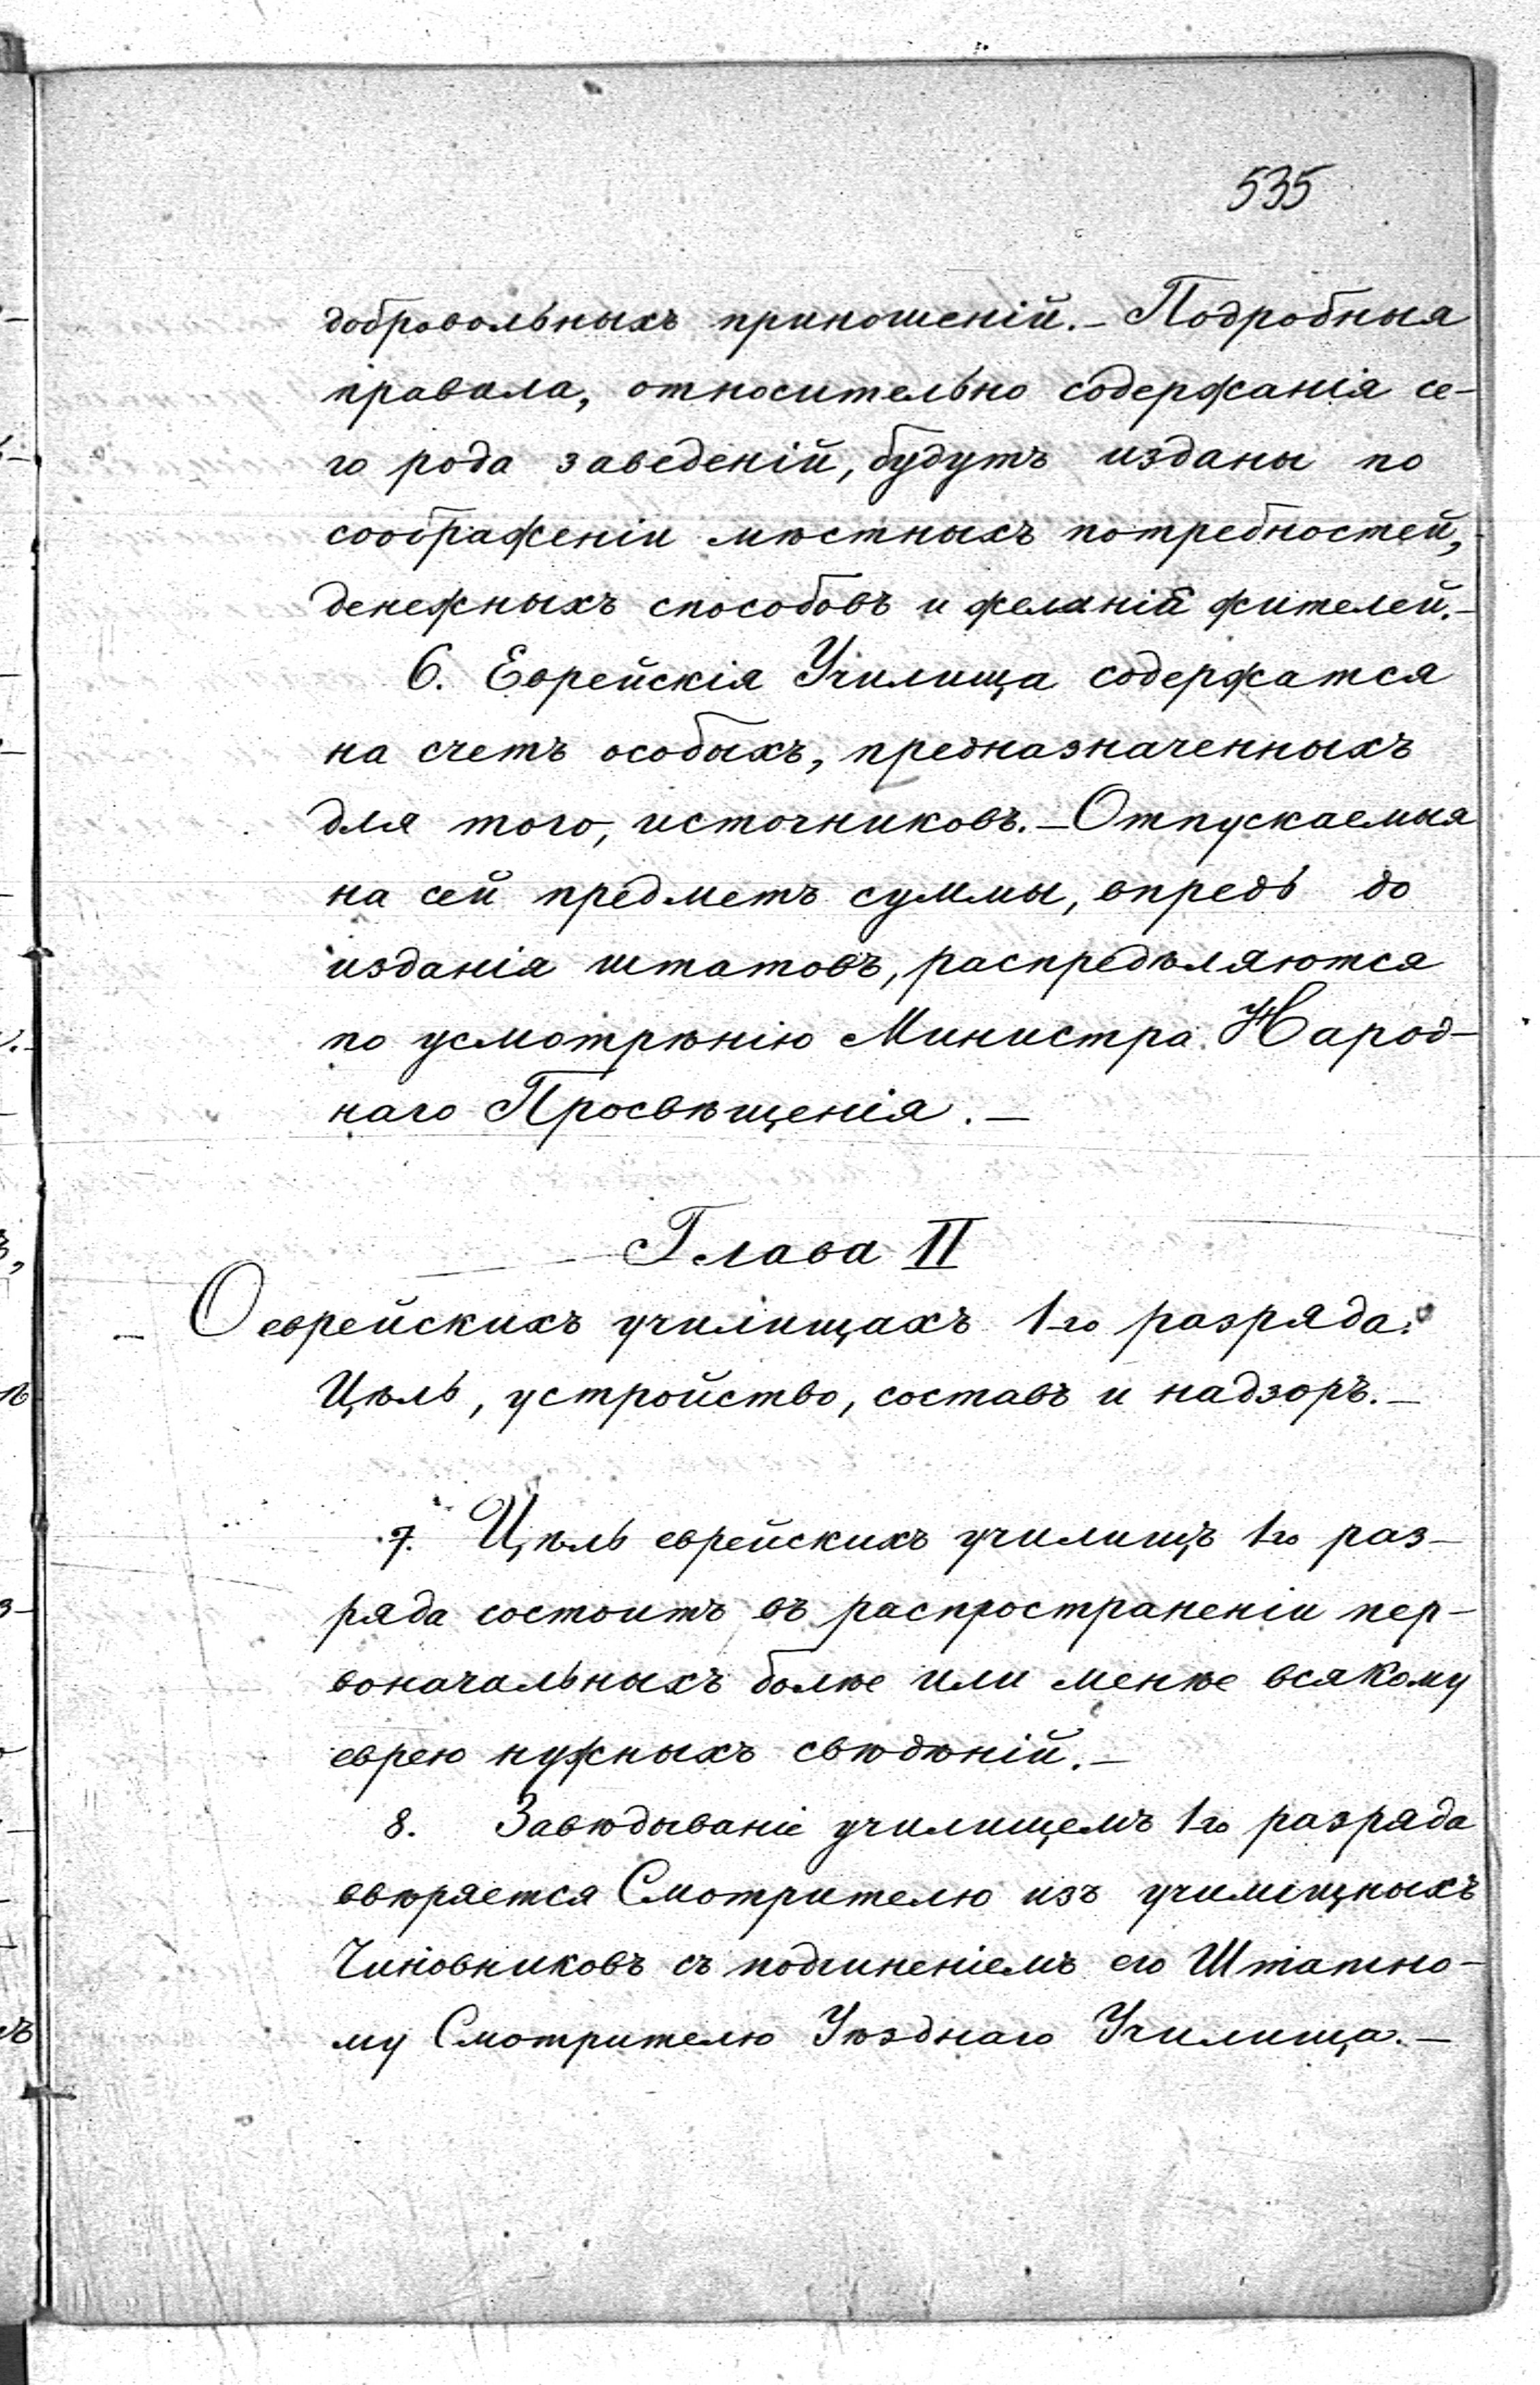 535
добровольныхъ приношеній.- Подробныя
правила, относительно содержанія се-
го рода заведеній, будутъ изданы по
соображеніи мѣстныхъ потребностей,
денежныхъ способовъ и желаній жителей.-
6. Еврейскія Училища содержатся
на счетъ особыхъ, предназначенныхъ
для того, источниковъ.- Отпускаемыя
на сей предметъ суммы, впредь до
изданія штатовъ, распредѣляются
по усмотрѣнію Министра Народ-
наго Просвѣщенія.-
Глава II
О еврейскихъ училищахъ 1-го разряда.
Цѣль, устройство, составъ и надзоръ.-
7. Цѣль еврейскихъ училищъ 1го раз-
ряда состоитъ въ распространеніи пер-
воначальныхъ болѣе или менѣе всякому
еврею нужныхъ свѣдѣній.-
8. Завѣдываніе училищемъ 1го разряда
ввѣряется Смотрителю изъ училищныхъ
Чиновниковъ съ подчиненіемъ его Штатно-
му Смотрителю Уѣзднаго Училища.-